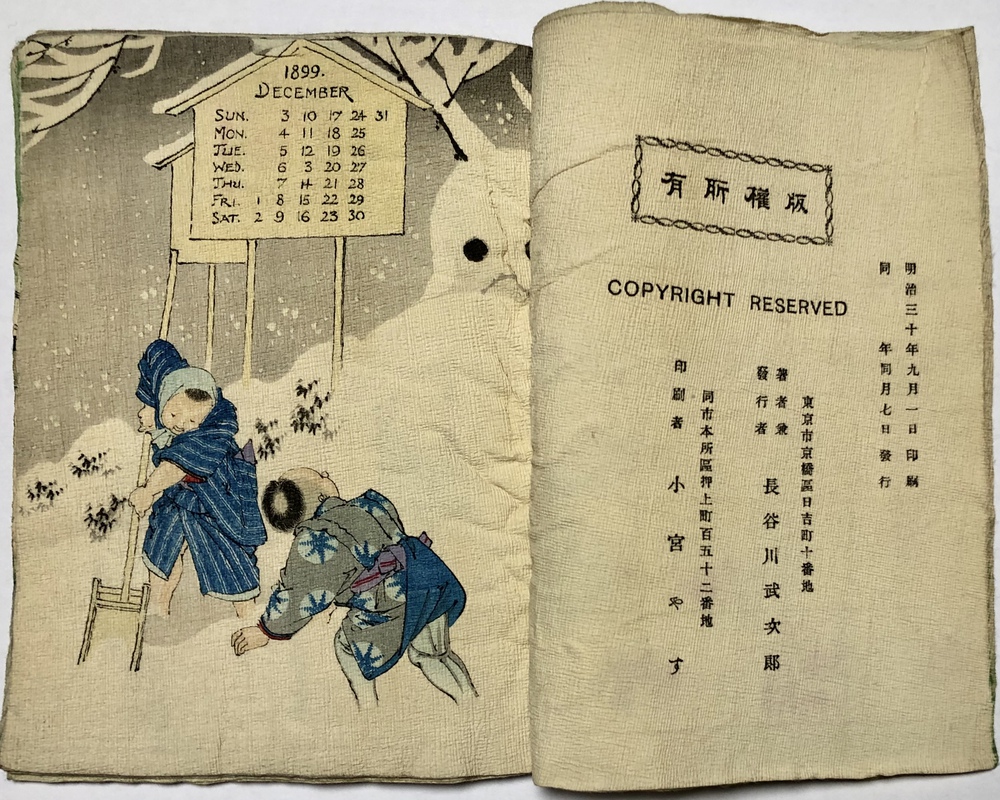 1899.
DECEMBER
SUN. 3 10 17 24 31
MON. 4 11 18 25
TUE. 5 12 19 26
WED. 6 3 20 27
THU. 7 14 21 28
FRI. 1 8 15 22 29
SAT. 2 9 16 23 30
有所權版
COPYRIGHT RESERVED
明治三十年九月一日印刷
同年同月七日發行
東京市京橋區日吉町十番地
著者兼
發行者 長谷川武次郎
同市本所區押上町百五十二番地
印刷者 小宮やす